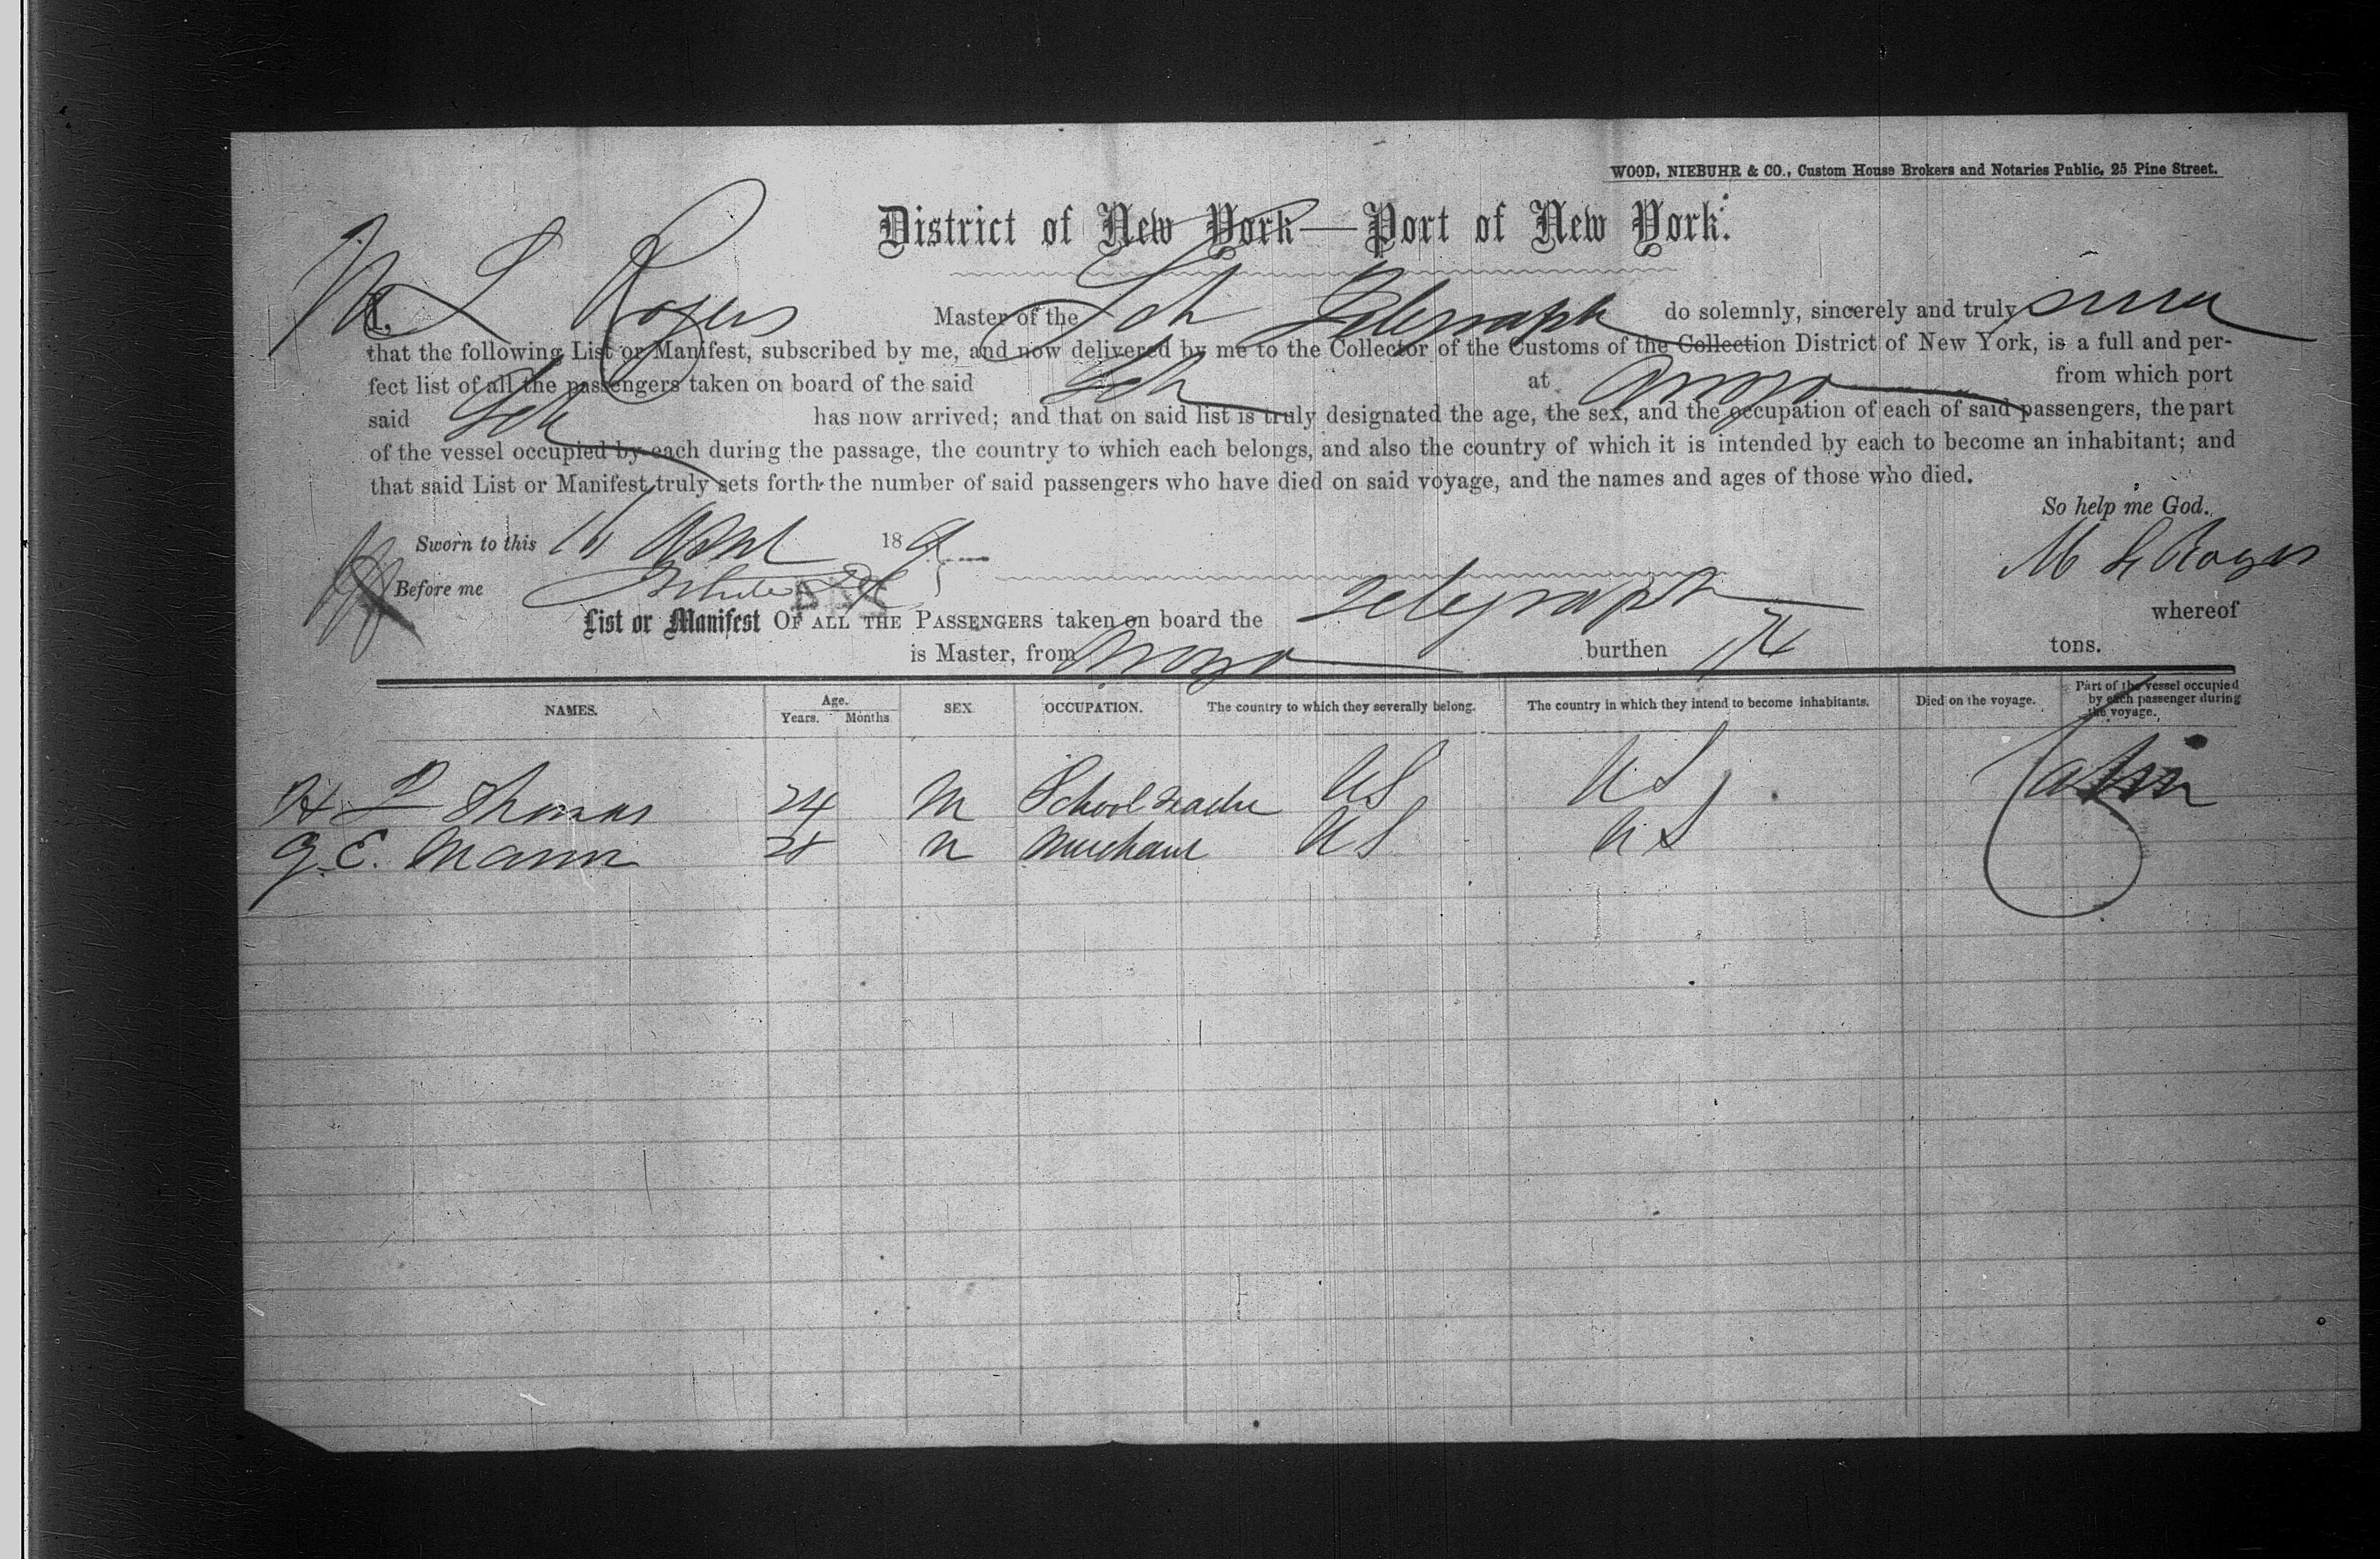 WOOD, NIEBUHR & CO., Custom House Brokers and Notaries Public, 25 Pine Street.
District of New York—Port of New York.
I, M L Rogers Master of the Sch Telegraph do solemnly, sincerely and truly swear
that the following List or Manifest, subscribed by me, and now delivered by me to the Collector of the Customs of the Collection District of New York, is a full and per-
fect list of all the passengers taken on board of the said Sch at Arroyo from which port
said Sch has now arrived; and that on said list is truly designated the age, the sex, and the occupation of each of said passengers, the part
of the vessel occupied by each during the passage, the country to which each belongs, and also the country of which it is intended by each to become an inhabitant; and
that said List or Manifest truly sets forth the number of said passengers who have died on said voyage, and the names and ages of those who died.
So help me God.
Sworn to this 16 April 189
M L Rogers
Before me
List or Manifest OF ALL THE PASSENGERS taken on board the Telegraph whereof
is Master, from Arroyo burthen 174 tons.
NAMES. Age. Years. Months SEX OCCUPATION. The country to which they severally belong. The country in which they intend to become inhabitants. Died on the voyage. Part of the vessel occupied by each passenger during the voyage.
H P Thomas 24 M School Teacher US US Cabin
G. E. Mann 28 M Merchant US US